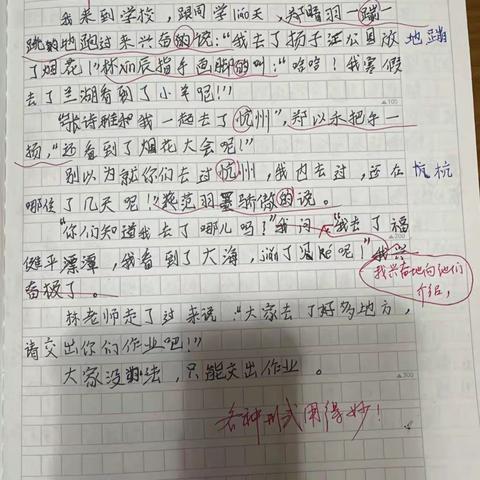 我来到学校，跟同学liáo天，郑晴羽一蹦一
跳的地跑过来兴奋的说：“我去了扬子江公园放 地 蹦
了烟花！”林xīn辰指手画脚的叫：“哈哈！我寒假
去了兰湖看到了小羊呢！”
“张诗雅和我一起去了忼州”，郑以永把牟一
扬，“还看到了烟花大会呢！”
别以为就你们去过忼州，我也去过，还在 忼 杭
哪住了几天呢！”范羽墨骄傲的说。
“你们知道我去了哪儿吗！”我问，“我去了福
建平潭，我看到了大海，还了呢！”我兴
奋极了。
我兴奋地向他们
介绍，
林老师走了过来说：“大家去了好多地方，
请交出你们作业吧！”
大家没办法，只能交出作业。
各种形式用得妙！